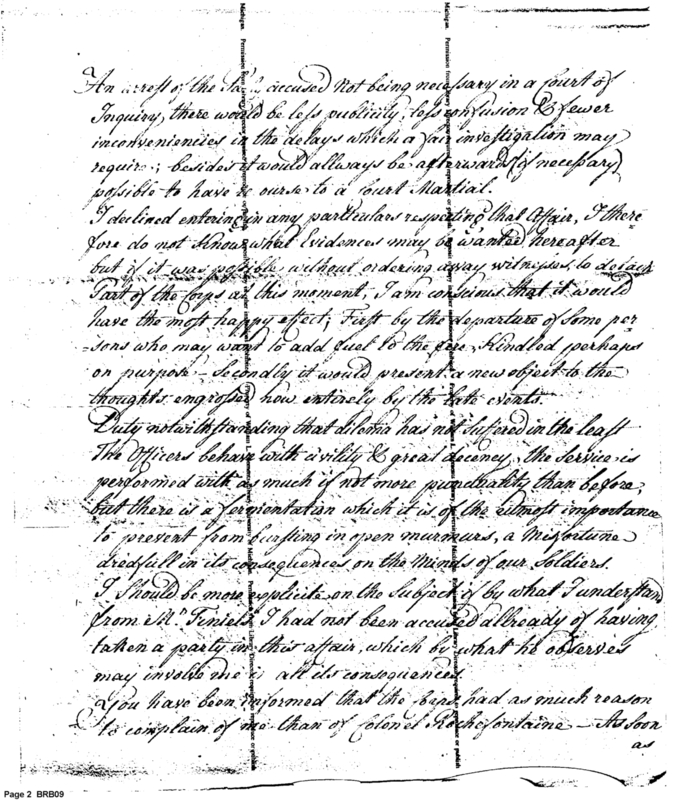 An arrest of the accused Not being necessary in a Court of
Inquiry, there would be less publicity, less confusion & fewer
inconveniencies in the delays which a fair investigation may
require; besides it would allways be afterwards (if necessary)
possible to have to a Court Martial.
I declined entering in any particulars respecting that Affair, I there
fore do not Know what Evidences may be wanted hereafter
but if it was possible without ordering away witnesses, to detach
Part of the Corps at this moment, I am conscious that it would
have the most happy effect; First by the departure of Some per
sons who may want to add fuel to the fire, Kindled perhaps
on purpose - Secondly it would present a new object to the
thoughts, engrossed now entirely by the late events.
Duty notwithstanding that dilema has not suffered in the least
The Officers behave with civility & great decency, the Service is
performed with as much if not more punctuality than before,
but there is a fermentation which it is of the utmost importance
to prevent from bursting in open murmurs, a Misfortune
dredfull in its consequences on the Minds of our Soldiers.
I Should be more explicite on the Subject if by what I understand
from Mr. I had not been accused allready of having
taken a party in this affair, which by what he observes
may involve me all its consequences.
You have been informed that the Corps had as much reason
to complain of me than of Colonel Rochefontaine - As Soon
as
Page 2 BRB09